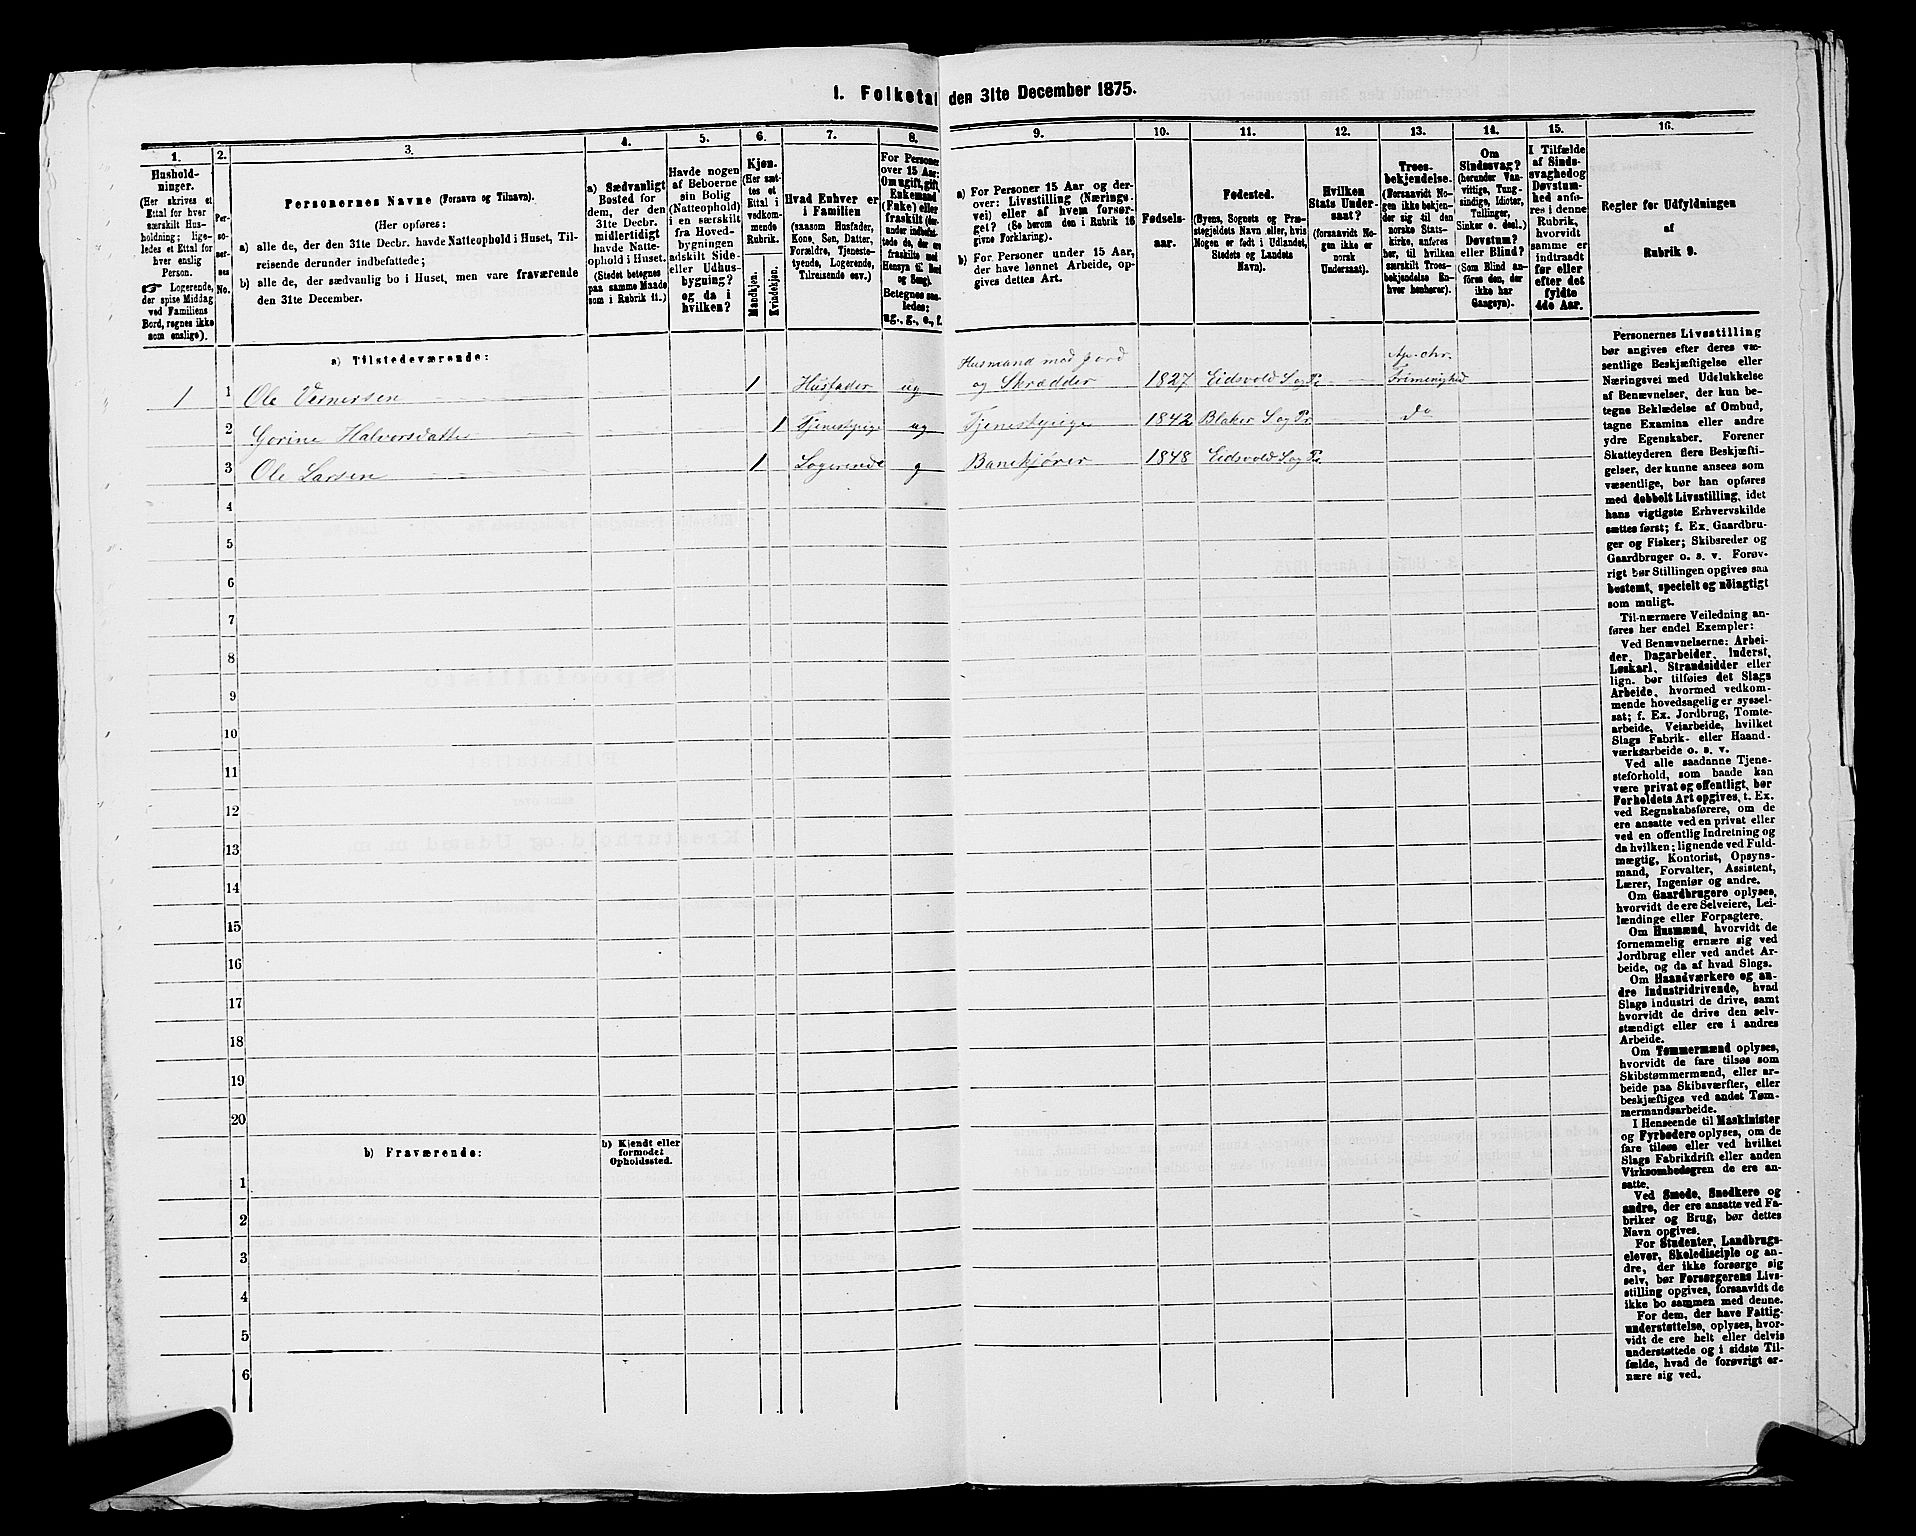 1. Folketal den 31te December 1875.
1.
2.
3.
4.
5.
6.
7.
8.
9.
10.
11.
12.
13.
14.
15.
16.
Hushold-
ninger.
(Her skrives et
Ettal for hver
særskilt Hus-
holdning; lige-
ledes et Ettal for
hver enslig
Person.
☞ Logerende,
der spise Middag
ved Familiens
Bord, regnes ikke
som enslige).
Per-
so-
ner-
nes
No.
Personernes Navne (Fornavn og Tilnavn).
(Her opføres:
a) alle de, der den 31te Decbr. havde Natteophold i Huset, Til-
reisende derunder indbefattede;
b) alle de, der sædvanlig bo i Huset, men vare fraværende
den 31te December.
a) Sædvanligt
Bosted for
dem, der den
31te Decbr.
midlertidigt
havde Natte-
ophold i Huset.
(Stedet betegnes
paa samme Maade
som i Rubrik 11.)
Havde nogen
af Beboerne
sin Bolig
(Natteophold)
i en særskilt
fra Hoved-
bygningen
adskilt Side-
eller Udhus-
bygning?
og da i
hvilken?
Kjøn.
(Her sæt-
tes et
Ettal i
vedkom-
mende
Rubrik.
Mandkjøn.
Kvindekjøn.
Hvad Enhver er
i Familien
(saasom Husfader,
Kone, Søn, Datter,
Forældre, Tjeneste-
tyende, Logerende,
Tilreisende osv.)
For Personer
over 15 Aar:
Om ugift, gift,
Enkemand
(Enke) eller
fraskilt (der-
under indbefat-
tede de, der ere
fraskilte med
Hensyn til Bord
og Seng).
Betegnes saa-
ledes:
ug., g., e., f.
a) For Personer 15 Aar og der-
over: Livsstilling (Nærings-
vei) eller af hvem forsør-
get? (Se herom den i Rubrik 16
givne Forklaring).
b) For Personer under 15 Aar,
der have lønnet Arbeide, op-
gives dettes Art.
Fødsels-
aar.
Fødested.
(Byens, Sognets og Præ-
stegjeldets Navn eller, hvis
Nogen er født i Udlandet,
Stedets og Landets
Navn).
Hvilken
Stats Under-
saat?
(forsaavidt No-
gen ikke er
norsk
Undersaat).
Troes-
bekjendelse.
(Forsaavidt No-
gen ikke bekjen-
der sig til den
norske Stats-
kirke, anføres
her, til hvilken
særskilt Troes-
bekjendelse En-
hver henhører).
Om
Sindssvag?
(herunder Van-
vittige, Tung-
sindige, Idioter,
Tullinger,
Sinker o. desl.).
Døvstum?
eller Blind?
(Som Blind an-
føres den, der
ikke har
Gangsyn).
I Tilfælde
af Sinds-
svaghed og
Døvstum-
hed anfø-
res i denne
Rubrik,
hvorvidt
samme er
indtraadt
før eller
efter det
fyldte
4de Aar.
Regler for Udfyldningen
af
Rubrik 9.
a) Tilstedeværende:
1 1 Ole Vernersen 1 Husfader ug Husmand med Jord og Skrædder 1827 Eidsvold S og Pr Ap. chr. Frimenighed
2 Gorine Halvorsdatter 1 Tjenestepige ug Tjenestepige 1842 Blaker S og Pr do
3 Ole Larsen 1 Logerende g Banekjører 1848 Eidsvold S og Pr
4
5
6
7
8
9
10
11
12
13
14
15
16
17
18
19
20
b) Fraværende:
b) Kjendt eller
formodet
Opholdssted.
1
2
3
4
5
6
Personernes Livsstilling
bør angives efter deres væ-
sentlige Beskjæftigelse eller
Næringsvei med Udelukkelse
af Benævnelser, der kun be-
tegne Beklædelse af Ombud,
tagne Examina eller andre
ydre Egenskaber. Forener
Skatteyderen flere Beskjæfti-
gelser, der kunne ansees som
væsentlige, bør han opføres
med dobbelt Livsstilling, idet
hans vigtigste Erhvervskilde
sættes først; f. Ex. Gaardbru-
ger og Fisker; Skibsreder og
Gaardbruger o. s. v. Forøv-
rigt bør Stillingen opgives saa
bestemt, specielt og nöiagtigt
som muligt.
Til nærmere Veiledning an-
føres her endel Exempler:
Ved Benævnelserne: Arbei-
der, Dagarbeider, Inderst,
Løskarl, Strandsidder eller
lign. bør tilføies det Slags
Arbeide, hvormed vedkom-
mende hovedsagelig er syssel-
sat; f. Ex. Jordbrug, Tomte-
arbeide, Veiarbeide, hvilket
Slags Fabrik- eller Haand-
værksarbeide o. s. v.
Ved alle saadanne Tjene-
steforhold, som baade kan
være privat og offentligt, bør
Forholdets Art opgives, t. Ex.
ved Regnskabsførere, om de
ere ansatte ved en privat eller
ved en offentlig Indretning og
da hvilken; lignende ved Fuld-
mægtig, Kontorist, Opsyns-
mand, Forvalter, Assistent,
Lærer, Ingeniør og andre.
Om Gaardbrugere oplyses,
hvorvidt de ere Selveiere, Lei-
lændinge eller Forpagtere.
Om Husmænd, hvorvidt de
fornemmelig ernære sig ved
Jordbrug eller ved andet Ar-
beide, og da af hvad Slags.
Om Haandværkere og an-
dre Industridrivende, hvad
Slags industri de drive, samt
hvorvidt de drive den selv-
stændigt eller ere i andres
Arbeide.
Om Tømmermænd oplyses,
hvorvidt de fare tilsøs som
Skibstømmermænd, eller ar-
beide paa Skibsværfter, eller
beskjæftiges ved andet Tøm-
mermandsarbeide.
I Henseende til Maskinister
og Fyrbødere oplyses, om de
fare tilsøs eller ved hvilket
Slags Fabrikdrift eller anden
Virksomhedsgren de ere an-
satte.
Ved Smede, Snedkere og
andre, der ere ansatte ved Fa-
briker og Brug, bør dettes
Navn opgives.
For Studenter, Landbrugs-
elever, Skoledisciple og an-
dre, der ikke forsørge sig
selv, bør Forsørgerens Livs-
stilling opgives, forsaavidt de
ikke bo sammen med denne.
For dem, der have Fattig-
understøttelse, oplyses, hvor-
vidt de ere helt eller delvis
understøttede og i sidste Til-
fælde, hvad de forøvrigt er-
nære sig ved.